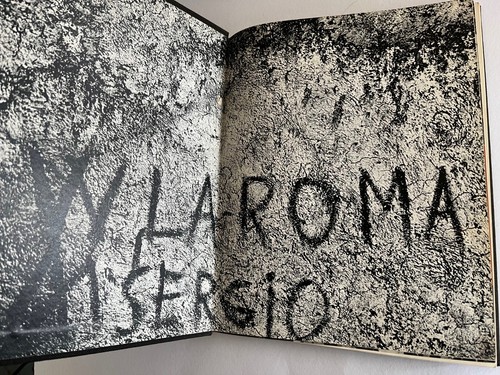 W LA ROMA
SERGIO